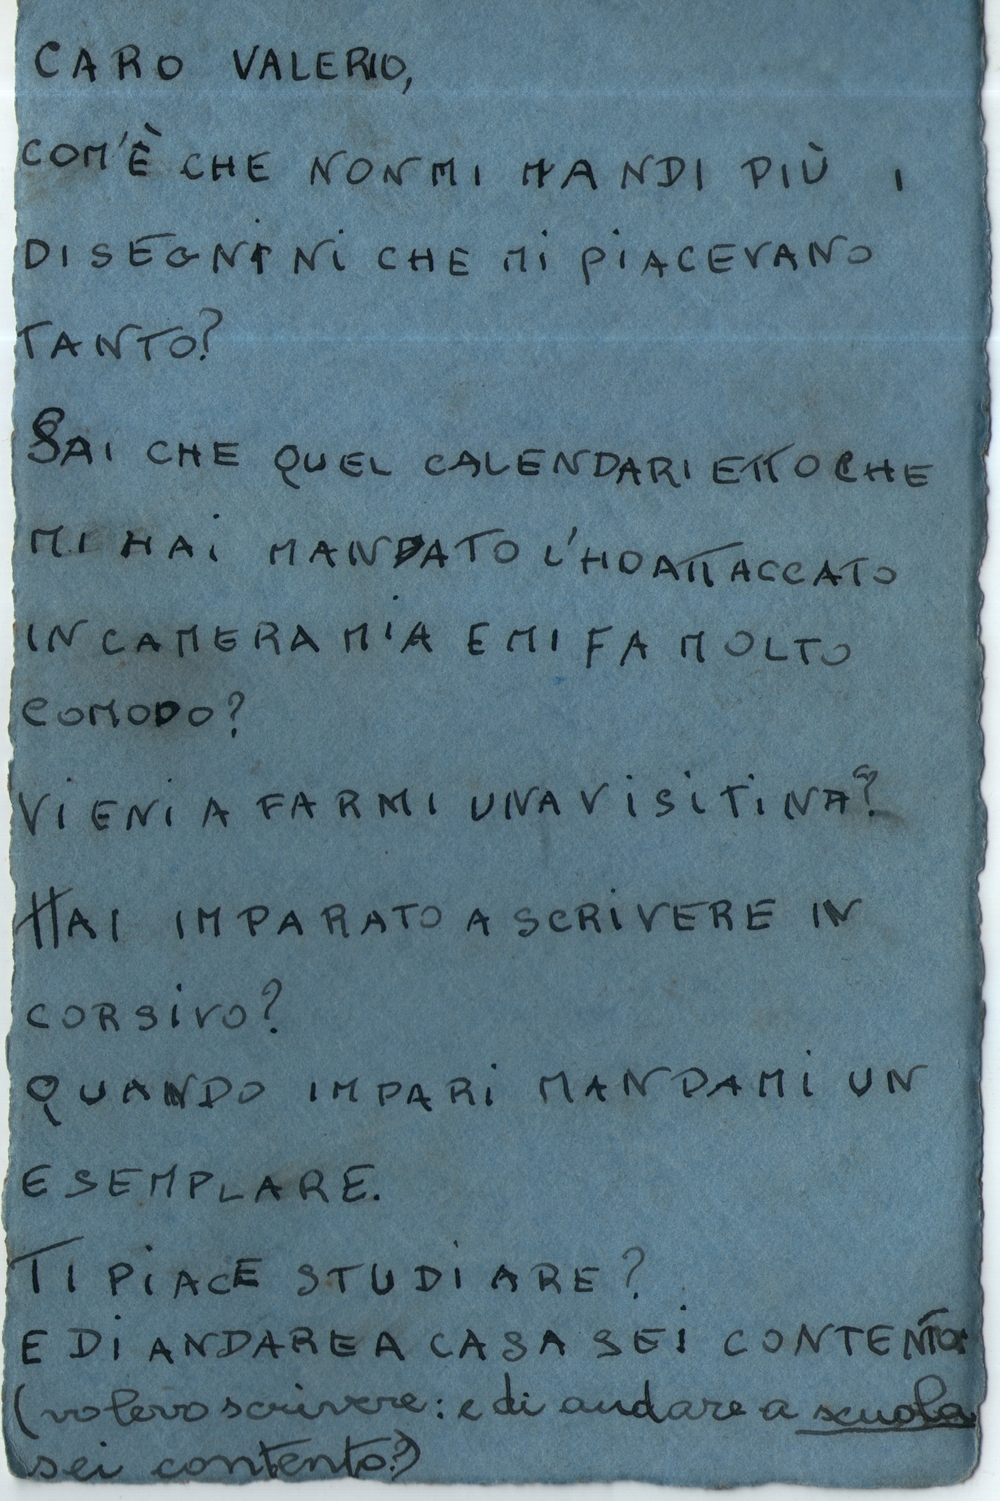 CARO VALERIO,
COM'È CHE NON MI MANDI PIÙ I
DISEGNINI CHE MI PIACEVANO
TANTO?
SAI CHE QUEL CALENDARIETTO CHE
MI HAI MANDATO L'HO ATTACCATO
IN CAMERA MIA E MI FA MOLTO
COMODO?
VIENI A FARMI UNA VISITINA?
HAI IMPARATO A SCRIVERE IN
CORSIVO?
QUANDO IMPARI MANDAMI UN
ESEMPLARE.
TI PIACE STUDIARE?
E DI ANDARE A CASA SEI CONTENTO?
(volevo scrivere: e di andare a scuola
sei contento?)